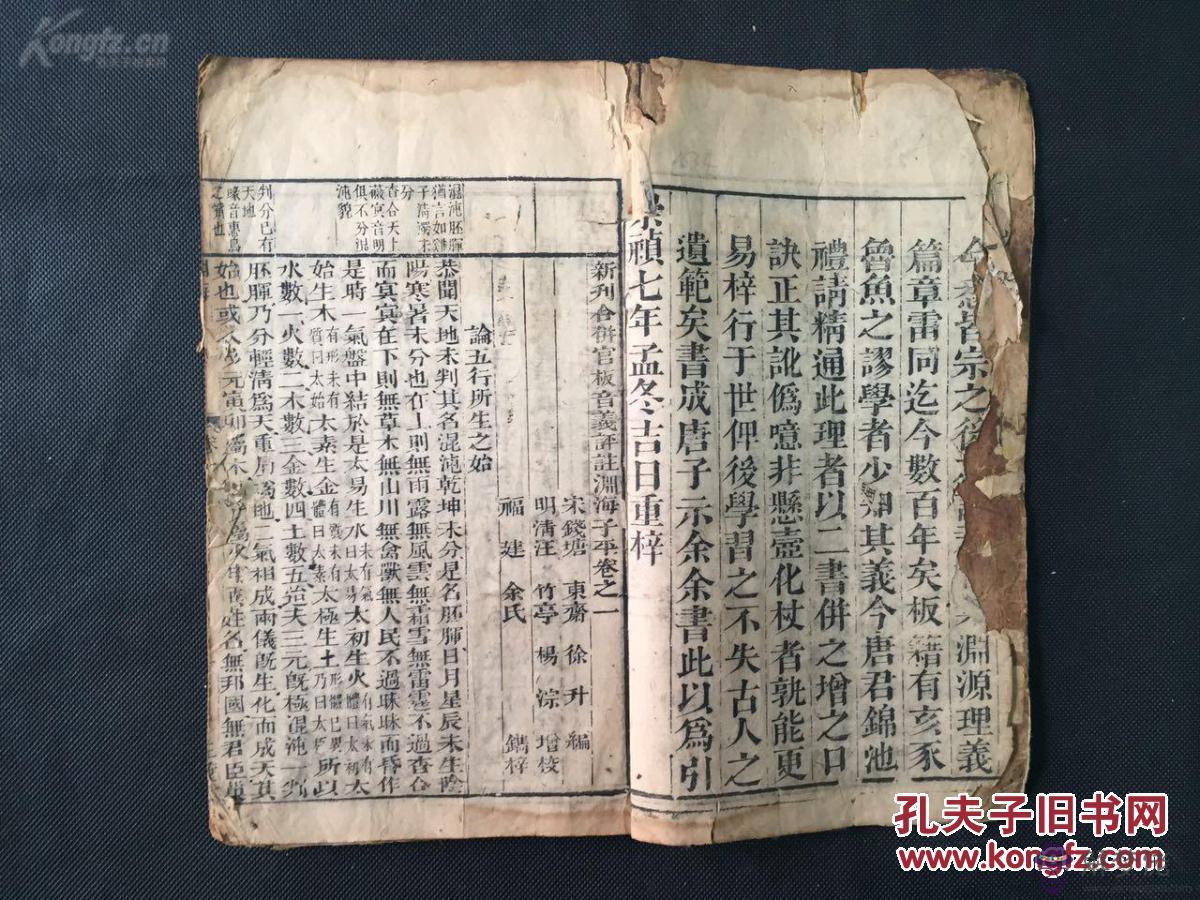 Kongfz.cn
宗之
淵源理義
篇章雷同迄今數百年矣板籍有亥豕
魯魚之謬學者少知其義今唐君錦池
禮請精通此理者以二書併之增之口
訣正其訛僞噫非懸壺化杖者孰能更
易梓行于世俾後學習之不失古人之
遺範矣書成唐子示余余書此以爲引
崇禎七年孟冬吉日重梓
新刊合併官板音義評註淵海子平卷之一
宋錢塘 東齋 徐升 編
明清江 竹亭 楊淙 增校
福建 余氏 鐫梓
論五行所生之始
混沌胚腪
猶言如雞
子淸濁未
分
杳合天上
藏㝠音明
俱不分混
沌貌
判分已有
天地
恭聞天地未判其名混沌乾坤未分是名胚腪日月星辰未生陰
陽寒暑未分也在上則無雨露無風雲無霜雪無雷霆不過杳合
而㝠㝠在下則無草木無山川無禽獸無人民不過昧昧而昏作
是時一氣盤中結於是太易生水未有氣曰太易太初生火有氣未有體曰太初太
始生木有形未有質曰太始太素生金有質未有體曰太素太極生土形體已具乃曰太極所以
水數一火數二木數三金數四土數五迨夫三元既極混沌一判
胚腪乃分輕清爲天重濁爲地二氣相成兩儀旣生化而成天其
始也或
元寅卯屬木
姓名無邦國無君臣
孔夫子旧书网
www.kongfz.com